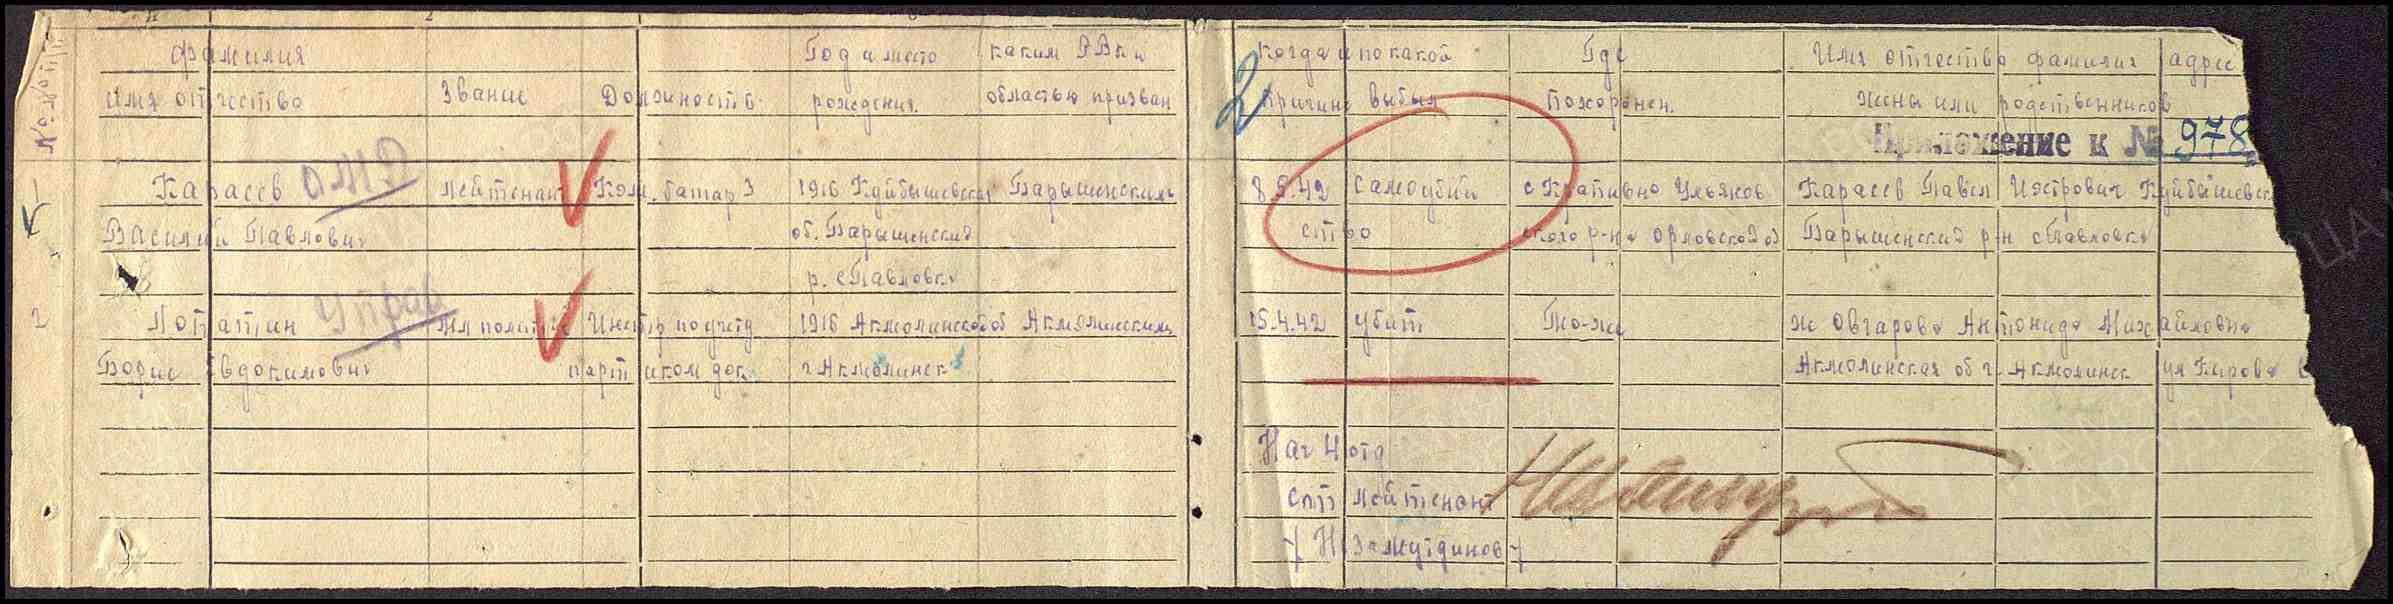 № по п/п
фамилия имя отчество
Звание
Должность
Год и место рождения
каким РВК и областью призван
когда и по какой причине выбыл
Где похоронен
Имя отчество фамилия адрес жены или родственников
2
Приложение к № 978
1 Карасев ОМЭ лейтенант Ком. батар 3 1916 Куйбышевская Барышенским 8.5.42 самоубий с Крапивно Ульянов Карасев Павел Петрович Куйбышевск
Василий Павлович об. Барышенский ство ского р-на Орловской об Барышенский р-н с Павловка
р. с Павловка
2 Лопатин Упраб Мл политрук Инстр по учету 1916 Акмолинской об Акмолинским 15.4.42 убит То-же ж Овчарова Антонида Михайловна
Борис Евдокимович парт и ком док. г Акмолинск Акмолинская об г. Акмолинск ул Кирова
Нач 4 отд
ст лейтенант
/ Незамутдинов /